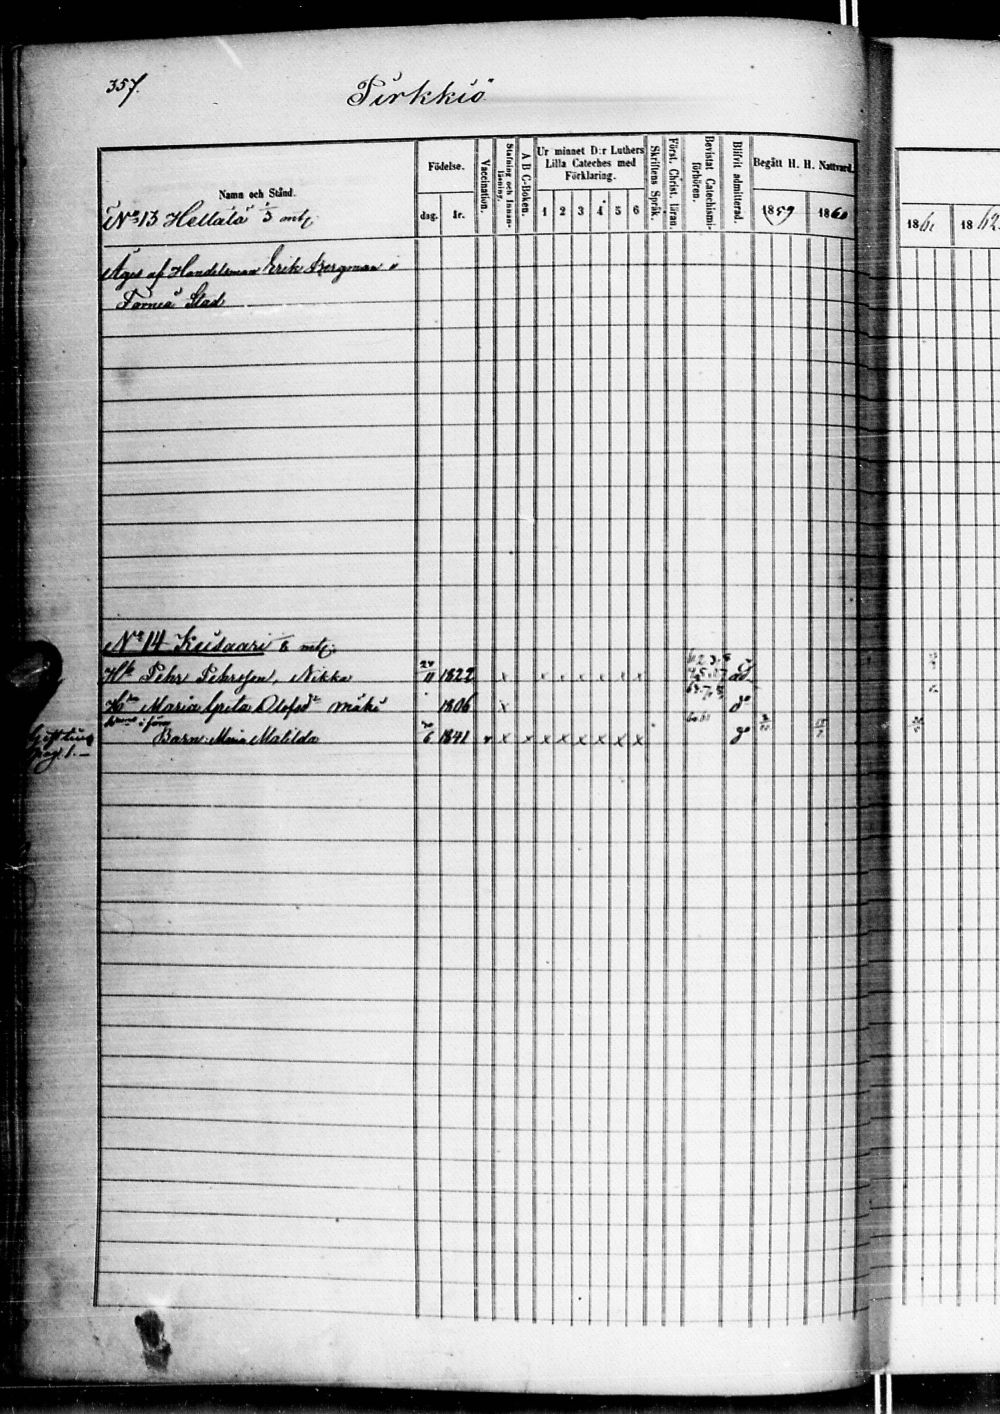 357.
Pirkkiö
Namn och Stånd.
Födelse.
dag.
år.
Vaccination.
Stafning och Innan-läsning.
A B C-Boken.
Ur minnet D:r Luthers
Lilla Cateches med
Förklaring.
1 2 3 4 5 6
Skriftens Språk.
Först. Christ. läran.
Bevistat Catechismi-förhören.
Blifvit admitterad.
Begått H. H. Nattvard.
1859 1860
1861 1862
No 13 Hellälä 1/3 mtl.
Äges af Handelsman Erik Bergman i
Torneå Stad
No 14 Kiisaari mtl.
Pehr Pehrsson Nikka 1822 x x x x x x x
Maria Greta Olofsdr Mäki 1806 x
Barn Maria Matilda 1841 x x x x x x x x
pag. 1.